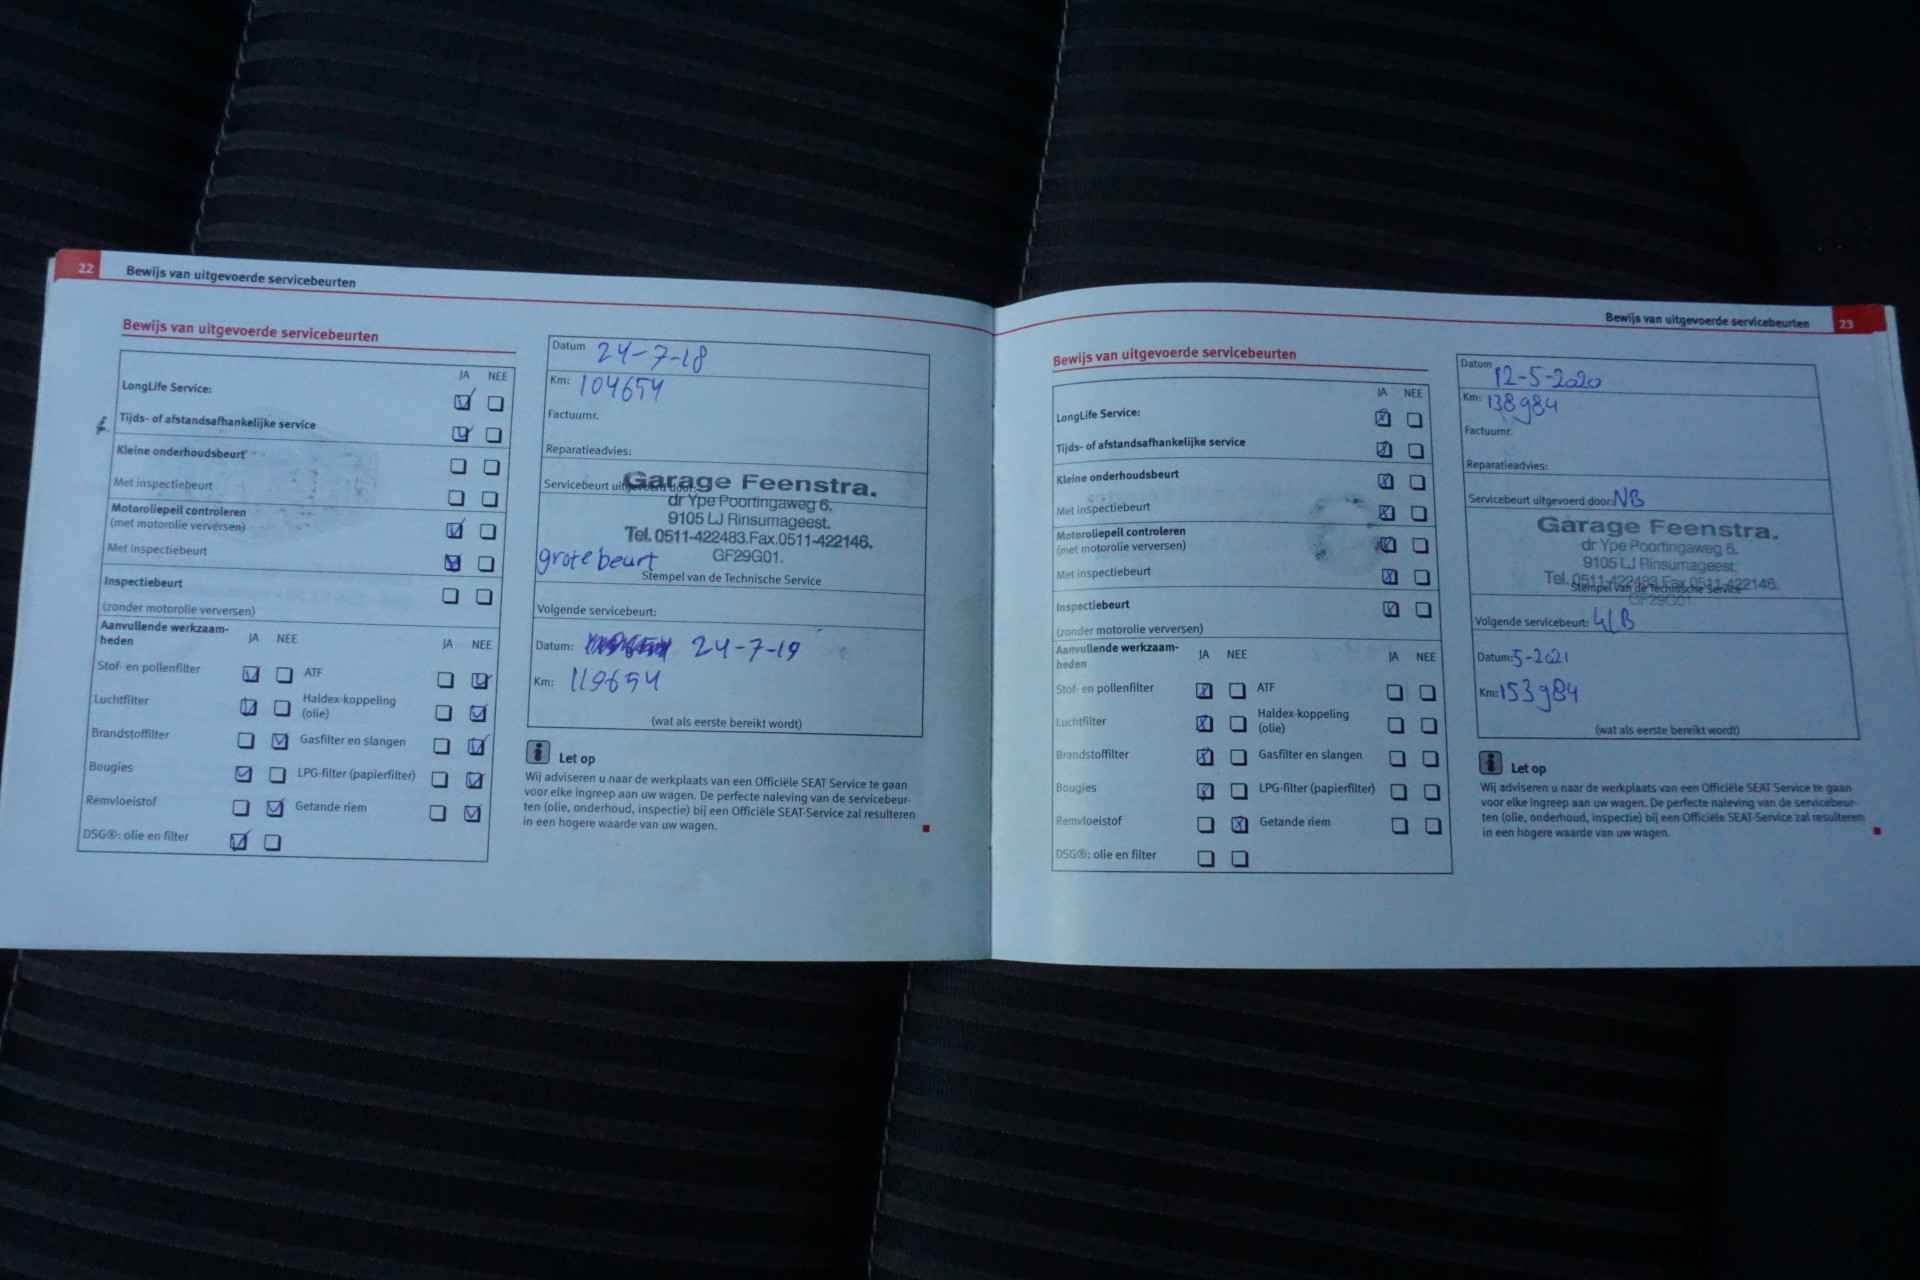 22 Bewijs van uitgevoerde servicebeurten
Bewijs van uitgevoerde servicebeurten
JA NEE
LongLife Service:
Tijds- of afstandsafhankelijke service
Kleine onderhoudsbeurt
Met inspectiebeurt
Motoroliepeil controleren
(met motorolie verversen)
Met inspectiebeurt
Inspectiebeurt
(zonder motorolie verversen)
Aanvullende werkzaam-
heden JA NEE JA NEE
Stof- en pollenfilter ATF
Luchtfilter Haldex-koppeling
(olie)
Brandstoffilter Gasfilter en slangen
Bougies LPG-filter (papierfilter)
Remvloeistof Getande riem
DSG®: olie en filter
Datum 24-7-18
Km: 104654
Factuurnr.
Reparatieadvies:
Servicebeurt uitgevoerd door:
Garage Feenstra.
dr Ype Poortingaweg 6.
9105 LJ Rinsumageest.
Tel. 0511-422483.Fax.0511-422146.
GF29G01.
grote beurt
Stempel van de Technische Service
Volgende servicebeurt:
Datum: 24-7-19
Km: 119654
(wat als eerste bereikt wordt)
Let op
Wij adviseren u naar de werkplaats van een Officiële SEAT Service te gaan
voor elke ingreep aan uw wagen. De perfecte naleving van de servicebeur-
ten (olie, onderhoud, inspectie) bij een Officiële SEAT-Service zal resulteren
in een hogere waarde van uw wagen.
Bewijs van uitgevoerde servicebeurten 23
Bewijs van uitgevoerde servicebeurten
JA NEE
LongLife Service:
Tijds- of afstandsafhankelijke service
Kleine onderhoudsbeurt
Met inspectiebeurt
Motoroliepeil controleren
(met motorolie verversen)
Met inspectiebeurt
Inspectiebeurt
(zonder motorolie verversen)
Aanvullende werkzaam-
heden JA NEE JA NEE
Stof- en pollenfilter ATF
Luchtfilter Haldex-koppeling
(olie)
Brandstoffilter Gasfilter en slangen
Bougies LPG-filter (papierfilter)
Remvloeistof Getande riem
DSG®: olie en filter
Datum 12-5-2020
Km: 138984
Factuurnr.
Reparatieadvies:
Servicebeurt uitgevoerd door: NB
Garage Feenstra.
dr Ype Poortingaweg 6.
9105 LJ Rinsumageest.
Tel. 0511-422483.Fax.0511-422146.
Stempel van de Technische Service
GF29G01
Volgende servicebeurt:
Datum: 5-2021
Km: 153984
(wat als eerste bereikt wordt)
Let op
Wij adviseren u naar de werkplaats van een Officiële SEAT Service te gaan
voor elke ingreep aan uw wagen. De perfecte naleving van de servicebeur-
ten (olie, onderhoud, inspectie) bij een Officiële SEAT-Service zal resulteren
in een hogere waarde van uw wagen.